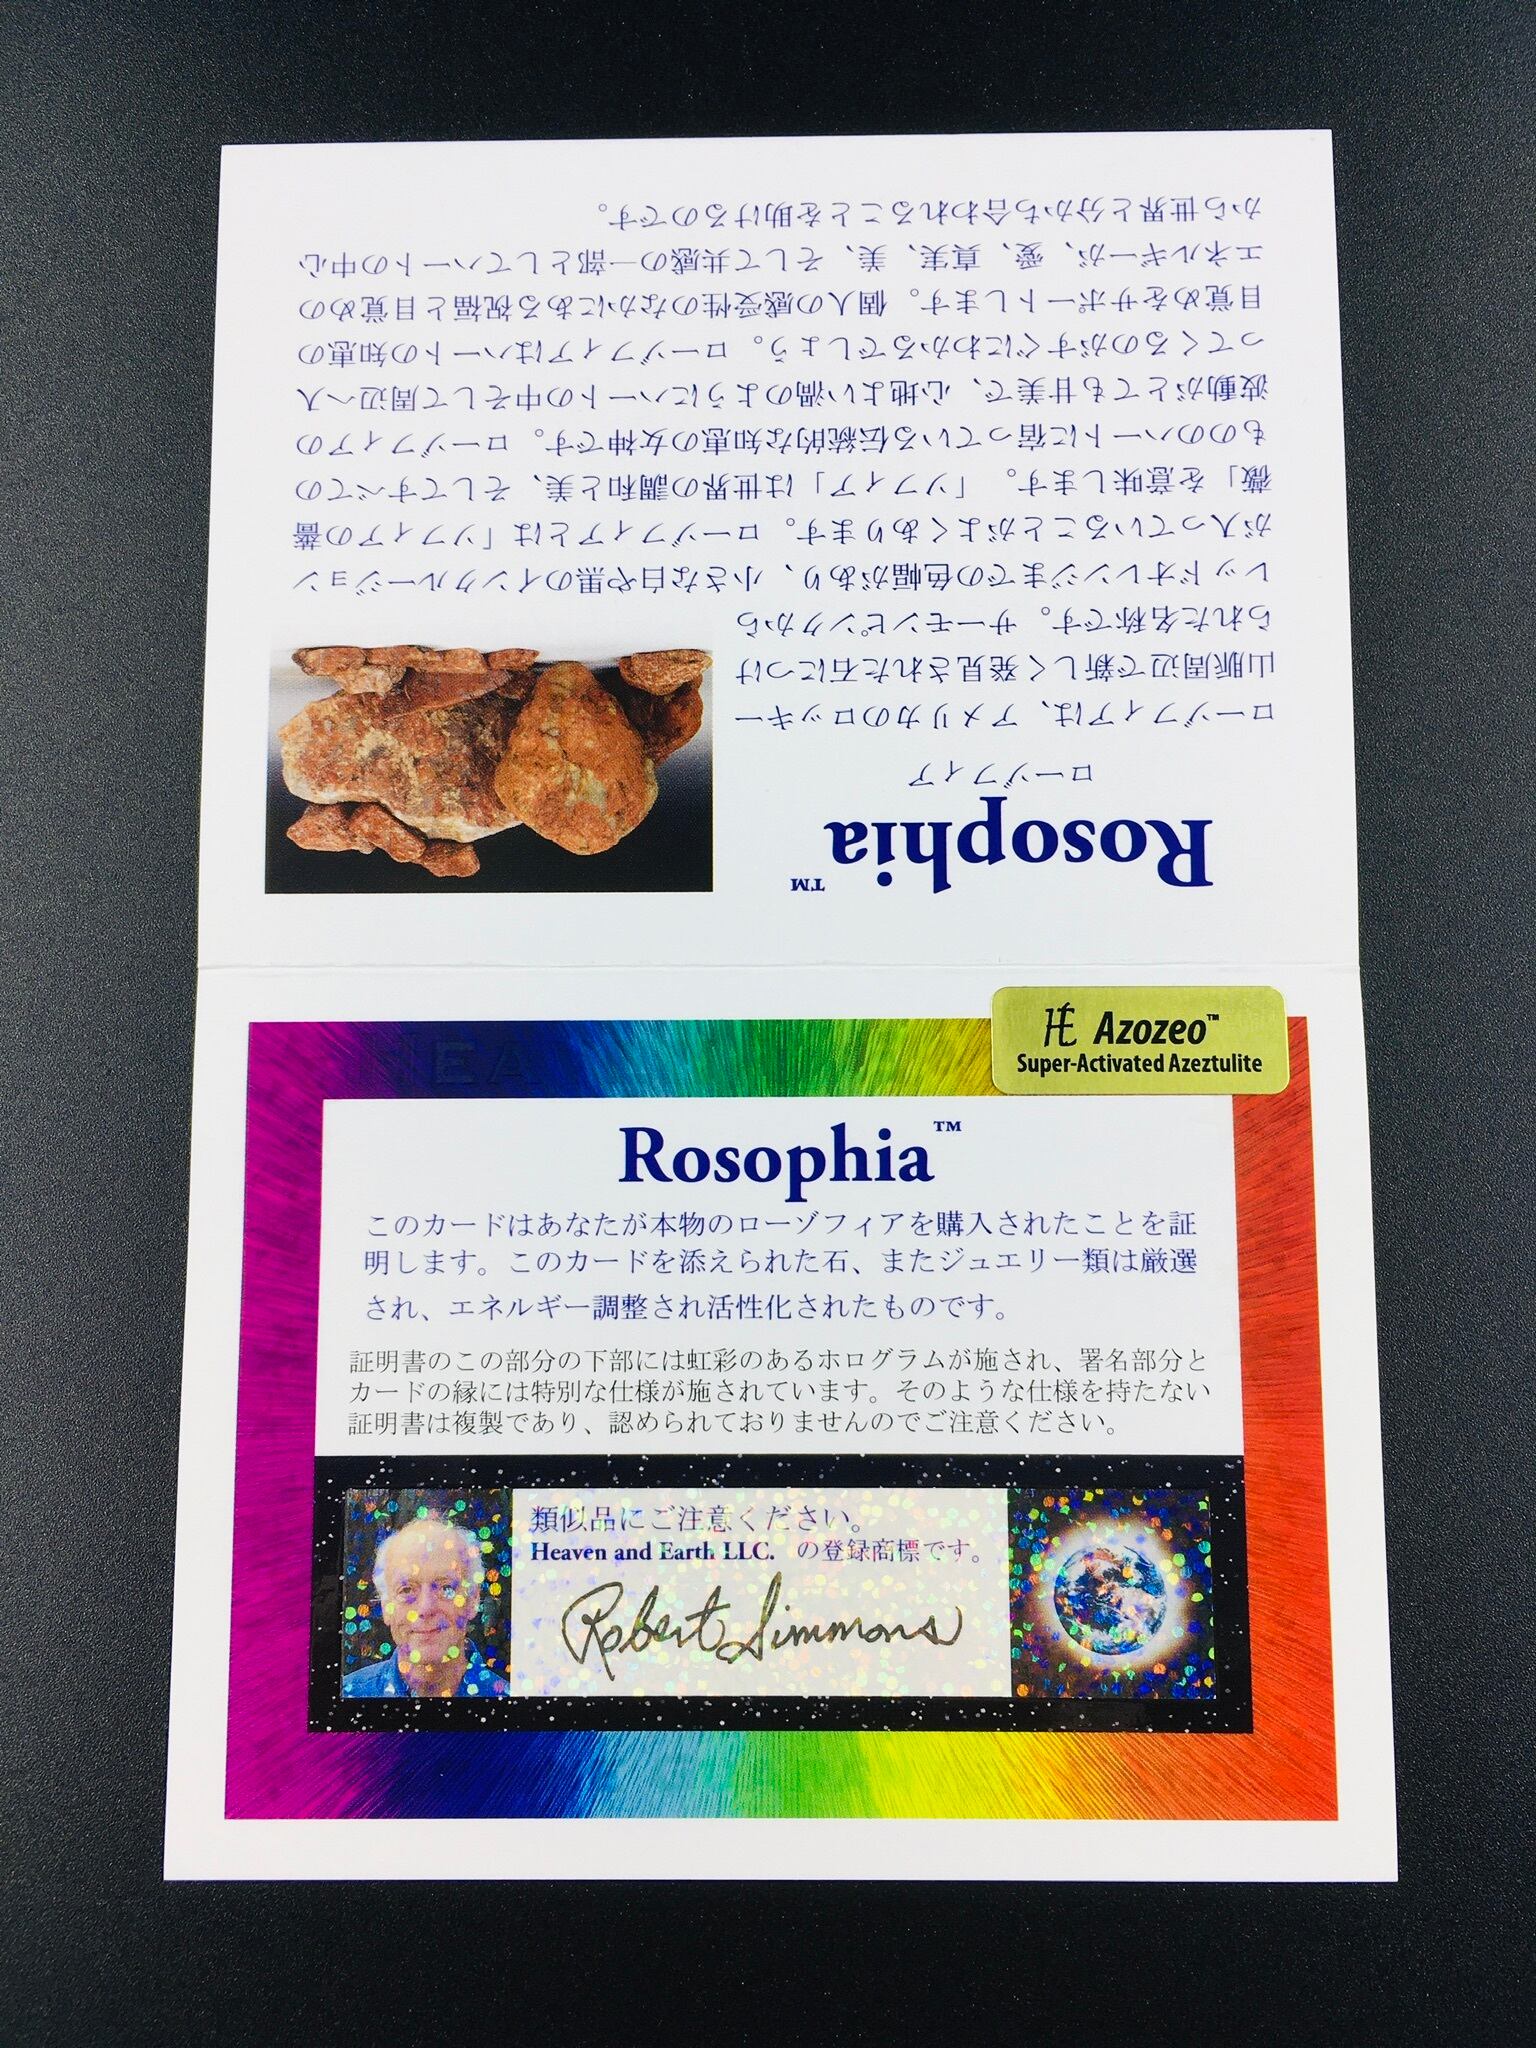 Rosophia™
ローゾフィア
ローゾフィアは、アメリカのロッキー
山脈周辺で新しく発見された石につけ
られた名称です。サーモンピンクから
レッドオレンジまでの色幅があり、小さな白や黒のインクルージョン
が入っていることがよくあります。ローゾフィアとは「ソフィアの薔
薇」を意味します。「ソフィア」は世界の調和と美、そしてすべての
もののハートに宿っている伝統的な知恵の女神です。ローゾフィアの
波動がとても甘美で、心地よい渦のようにハートの中そして周辺へ入
ってくるのがすぐにわかるでしょう。ローゾフィアはハートの知恵の
目覚めをサポートします。個人の感受性のなかにある祝福と目覚めの
エネルギーが、愛、真実、美、そして共感の一部としてハートの中心
から世界と分かち合われることを助けるのです。
HE Azozeo™
Super-Activated Azeztulite
HEA
Rosophia™
このカードはあなたが本物のローゾフィアを購入されたことを証
明します。このカードを添えられた石、またジュエリー類は厳選
され、エネルギー調整され活性化されたものです。
証明書のこの部分の下部には虹彩のあるホログラムが施され、署名部分と
カードの縁には特別な仕様が施されています。そのような仕様を持たない
証明書は複製であり、認められておりませんのでご注意ください。
類似品にご注意ください。
Heaven and Earth LLC. の登録商標です。
Robert Simmons